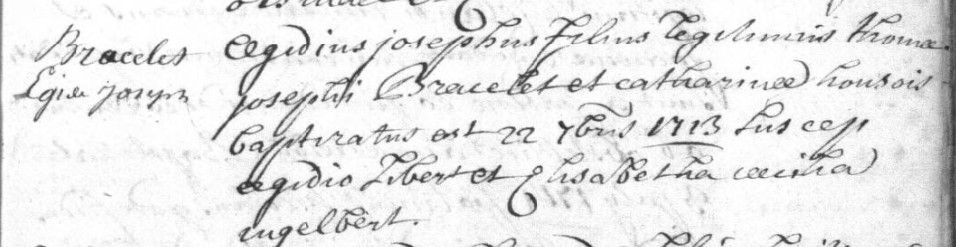 Bracelet
Egide joseph
Ægidius josephus filius legitimus thomæ
josephi Bracelet et catharinæ housois
baptizatus est 22 7bris 1713 Suscep
ægidio Libert et Elisabetha cecilia
ingelbert.